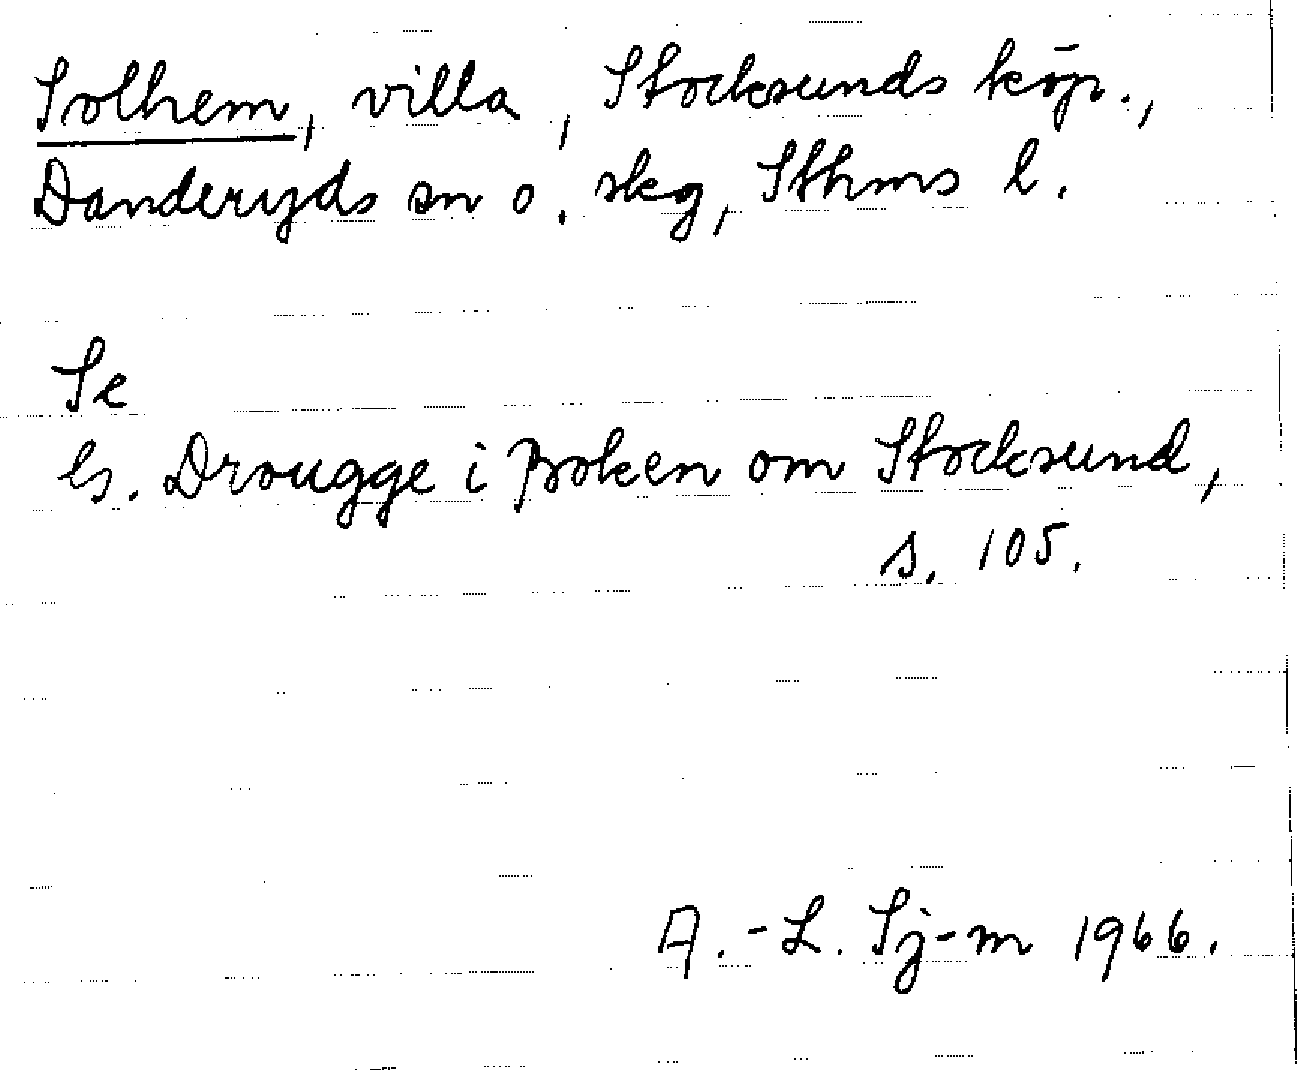 Solhem, villa, Stocksunds köp.,
Danderyds sn o. skg, Sthms l.
Se
G. Drougge i Boken om Stocksund,
s. 105.
A.-L. Sj-m 1966.